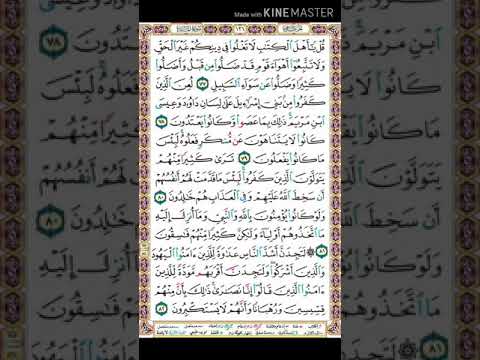 Made with KINEMASTER
١٢١
قُلْ يَٰٓأَهْلَ ٱلْكِتَٰبِ لَا تَغْلُوا۟ فِى دِينِكُمْ غَيْرَ ٱلْحَقِّ
وَلَا تَتَّبِعُوٓا۟ أَهْوَآءَ قَوْمٍ قَدْ ضَلُّوا۟ مِن قَبْلُ وَأَضَلُّوا۟
كَثِيرًا وَضَلُّوا۟ عَن سَوَآءِ ٱلسَّبِيلِ ٧٧ لُعِنَ ٱلَّذِينَ
كَفَرُوا۟ مِنۢ بَنِىٓ إِسْرَٰٓءِيلَ عَلَىٰ لِسَانِ دَاوُۥدَ وَعِيسَى
ٱبْنِ مَرْيَمَ ذَٰلِكَ بِمَا عَصَوا۟ وَّكَانُوا۟ يَعْتَدُونَ ٧٨
كَانُوا۟ لَا يَتَنَاهَوْنَ عَن مُّنكَرٍ فَعَلُوهُ لَبِئْسَ
مَا كَانُوا۟ يَفْعَلُونَ ٧٩ تَرَىٰ كَثِيرًا مِّنْهُمْ
يَتَوَلَّوْنَ ٱلَّذِينَ كَفَرُوا۟ لَبِئْسَ مَا قَدَّمَتْ لَهُمْ أَنفُسُهُمْ
أَن سَخِطَ ٱللَّهُ عَلَيْهِمْ وَفِى ٱلْعَذَابِ هُمْ خَٰلِدُونَ ٨٠
وَلَوْ كَانُوا۟ يُؤْمِنُونَ بِٱللَّهِ وَٱلنَّبِىِّ وَمَآ أُنزِلَ إِلَيْهِ
مَا ٱتَّخَذُوهُمْ أَوْلِيَآءَ وَلَٰكِنَّ كَثِيرًا مِّنْهُمْ فَٰسِقُونَ
٨١ ۞ لَتَجِدَنَّ أَشَدَّ ٱلنَّاسِ عَدَٰوَةً لِّلَّذِينَ ءَامَنُوا۟ ٱلْيَهُودَ
وَٱلَّذِينَ أَشْرَكُوا۟ وَلَتَجِدَنَّ أَقْرَبَهُم مَّوَدَّةً لِّلَّذِينَ
ءَامَنُوا۟ ٱلَّذِينَ قَالُوٓا۟ إِنَّا نَصَٰرَىٰ ذَٰلِكَ بِأَنَّ مِنْهُمْ
قِسِّيسِينَ وَرُهْبَانًا وَأَنَّهُمْ لَا يَسْتَكْبِرُونَ ٨٢